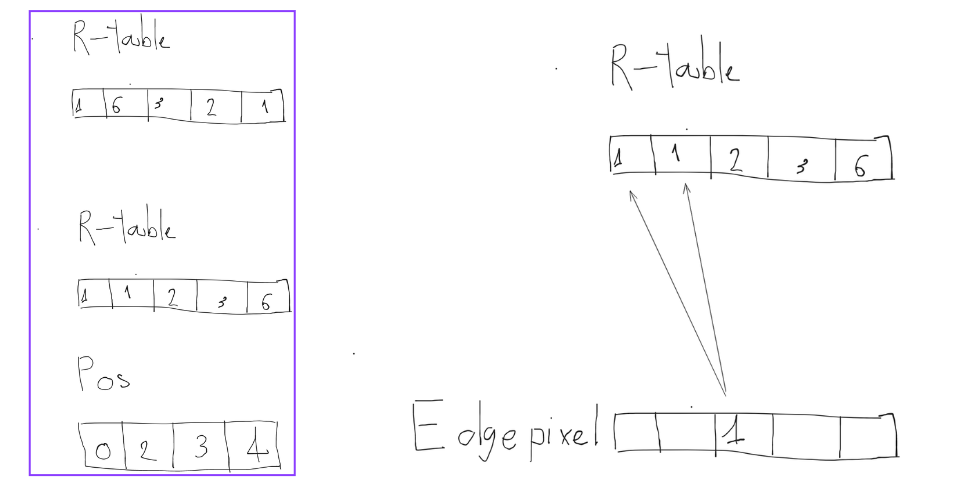 R-table
1 6 3 2 1
R-table
1 1 2 3 6
Pos
0 2 3 4
R-table
1 1 2 3 6
Edgepixel 1